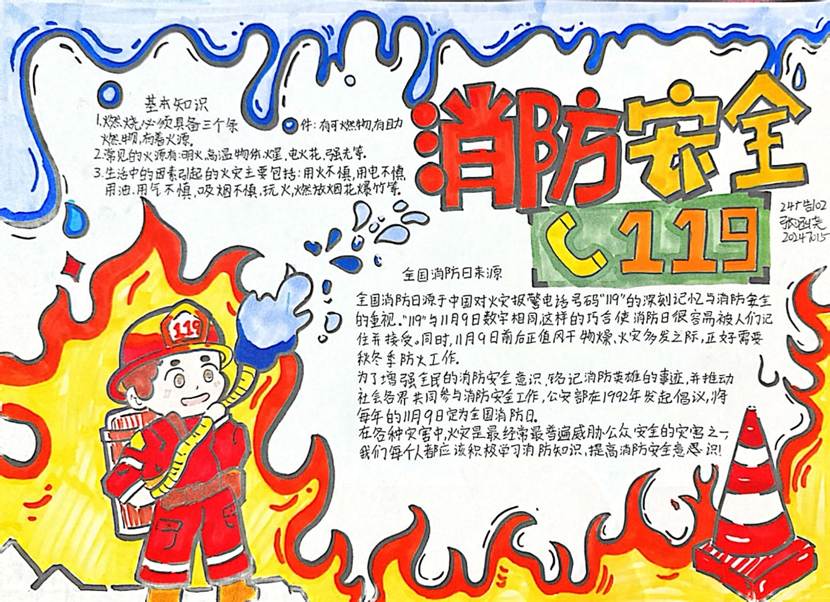 消防安全
119
基本知识
1.燃烧必须具备三个条件:有可燃物,有助
燃物,有着火源。
2.常见的火源有:明火,高温物体,煌,电火花,强光等。
3.生活中的因素引起的火灾主要包括:用火不慎,用电不慎,
用油、用气不慎,吸烟不慎,玩火,燃放烟花爆竹等。
全国消防日来源
全国消防日源于中国对火灾报警电话号码"119"的深刻记忆与消防安全
的重视。"119"与11月9日数字相同,这样的巧合使消防日很容易被人们记
住并接受。同时,11月9日前后正值风干物燥、火灾多发之际,正好需要
秋冬季防火工作。
为了增强全民的消防安全意识,铭记消防英雄的事迹,并推动
社会各界共同参与消防安全工作,公安部在1992年发起倡议,将
每年的11月9日定为全国消防日。
在各种灾害中,火灾是最经常最普遍威胁公众安全的灾害之一,
我们每个人都应该积极学习消防知识,提高消防安全意识!
119